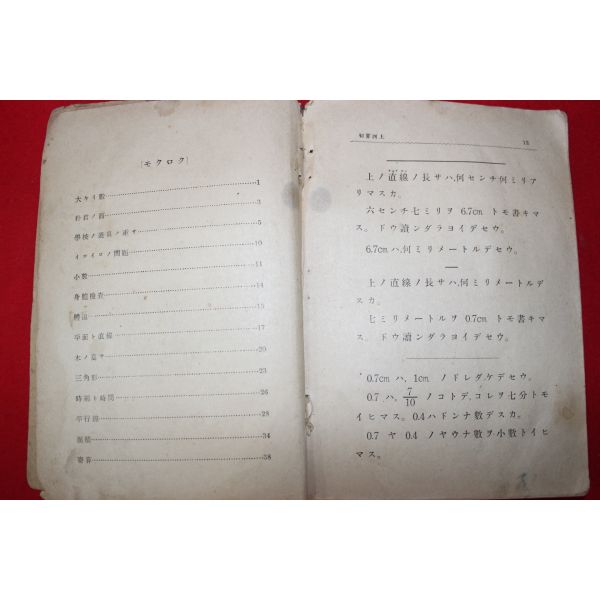 [モクロク]
大キイ數 1
3
學校ノ 5
イロイロノ問題 10
小數 11
身體檢査 14
15
平面ト直線 17
木ノ高サ 20
三角形 23
時刻ト時間 26
平行 28
面積 34
38
初算四上 13
上ノ直線ノ長サハ、何センチ何ミリア
リマスカ。
六センチ七ミリヲ 6.7cm トモ書キマ
ス。 ドウ讀ンダラヨイデセウ。
6.7cm ハ、何ミリメートルデセウ。
上ノ直線ノ長サハ、何ミリメートルデ
スカ。
七ミリメートルヲ 0.7cm トモ書キマ
ス。 ドウ讀ンダラヨイデセウ。
0.7cm ハ、1cm ノドレダケデセウ。
0.7 ハ、7/10 ノコトデ、コレヲ七分トモ
イヒマス。0.4 ハドンナ數デスカ。
0.7 ヤ 0.4 ノヤウナ數ヲ小數トイヒ
マス。